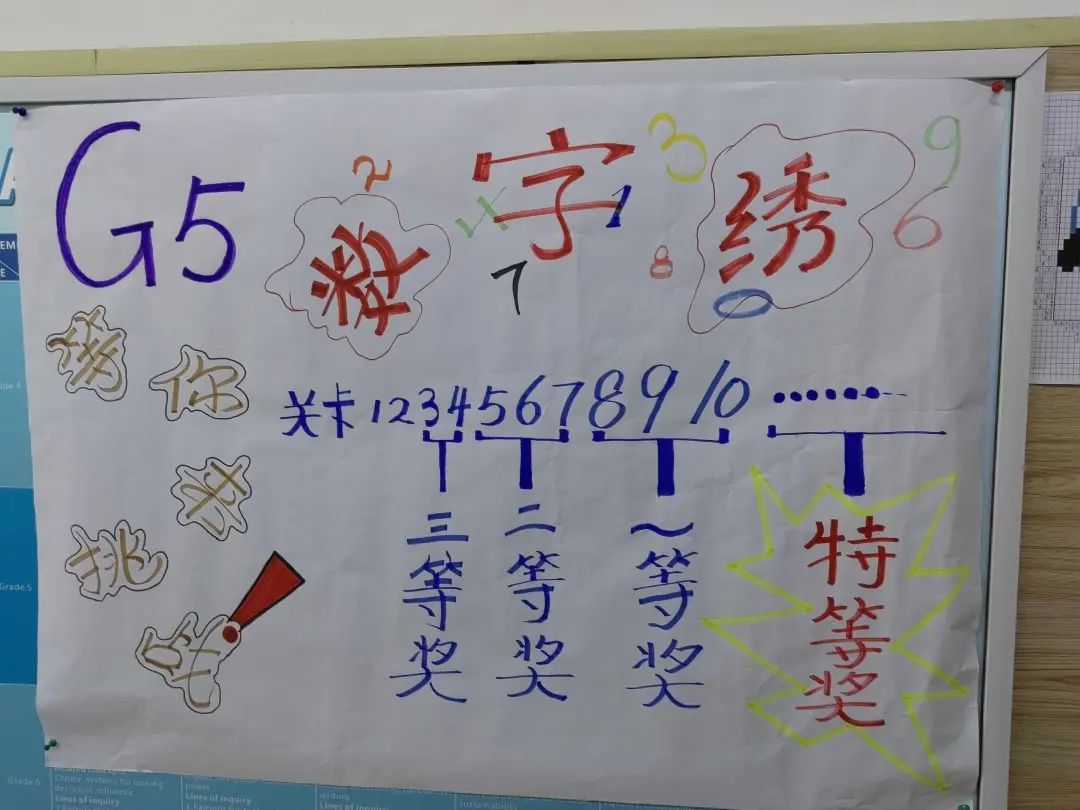 G5
数字绣
2
3
9
4
1
6
8
7
0
你
来
挑
关卡 1 2 3 4 5 6 7 8 9 10 ·······
三等奖
二等奖
一等奖
特等奖
Grade 5
Grade 6
Choice systems for making
Lines of inquiry
power
Lines of inquiry
writing
Lines of inquiry